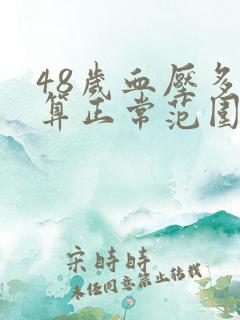 48歲血壓多
算正常范围
宋時時
未经同意禁止转载